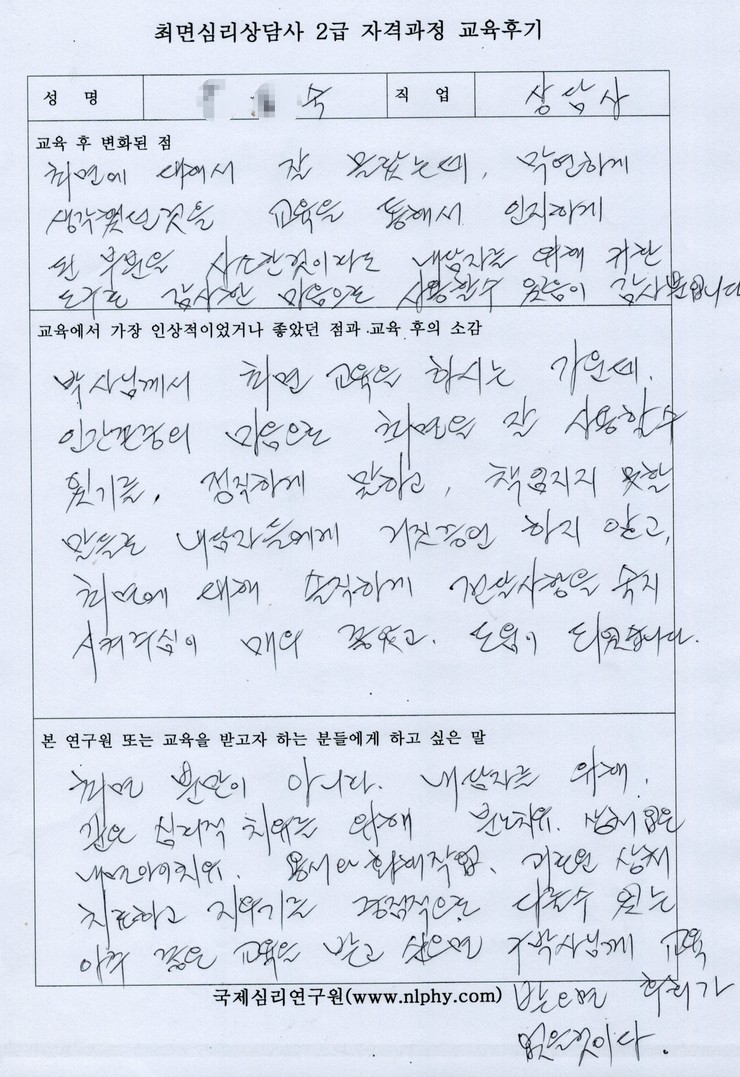 최면심리상담사 2급 자격과정 교육후기
성 명 숙 직 업 상담사
교육 후 변화된 점
최면에 대해서 잘 몰랐는데, 막연하게
생각했던것을 교육을 통해서 인지하게
된 부분을 사소한것이라도 내담자를 위해 귀한
도구로 감사한 마음으로 사용할수 있음이 감사뿐입니다
교육에서 가장 인상적이었거나 좋았던 점과 교육 후의 소감
박사님께서 최면 교육을 하시는 가운데.
인간존중의 마음으로 최면을 잘 사용할수
있기를, 정직하게 말하고, 책임지지 못할
말들로 내담자들에게 거짓증언 하지 않고,
최면에 대해 솔직하게 전달사항을 숙지
시켜주심이 매우 좋았고. 도움이 되었습니다.
본 연구원 또는 교육을 받고자 하는 분들에게 하고 싶은 말
최면 뿐만이 아니다. 내담자를 위해.
깊은 심리적 치유를 위해 분노치유. 상처입은
내면아이치유. 용서와 화해작업. 상처
치료하고 지우기를 중점적으로 다룰수 있는
아주 좋은 교육을 받고 싶으면 박사님께 교육
받으면 후회가
없을것이다.
국제심리연구원(www.nlphy.com)